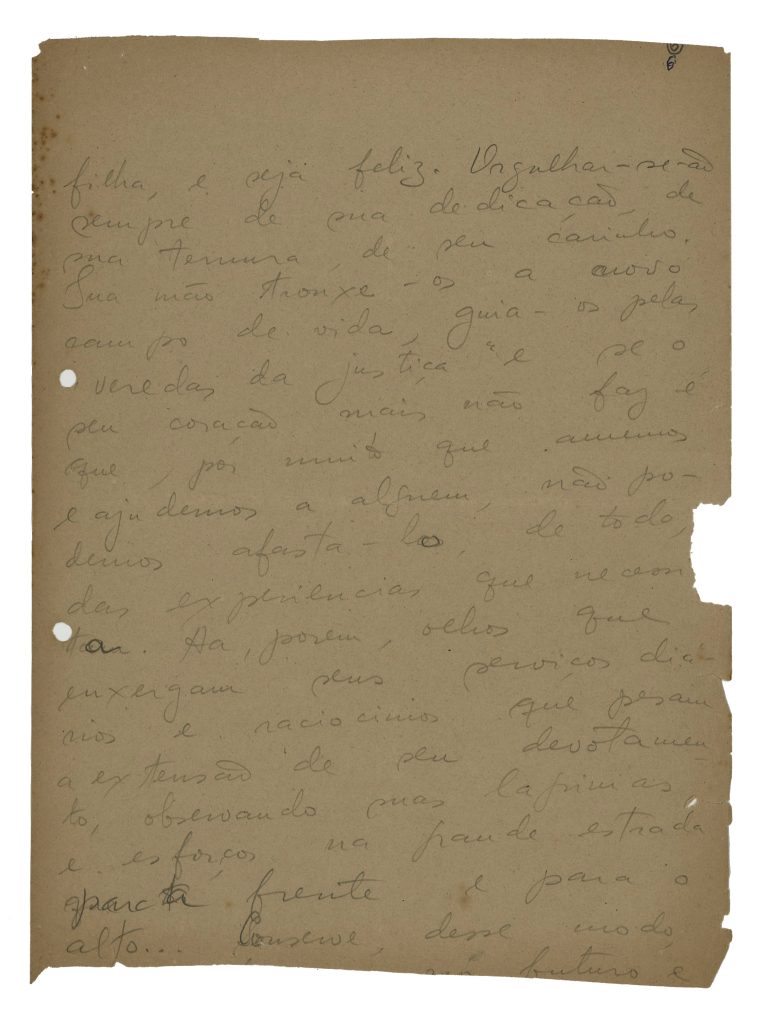 6
6
filha, e seja feliz. Orgulhar-se-ão
sempre de sua dedicação, de
sua ternura, de seu carinho.
Sua mão trouxe-os a novo
campo de vida, guia-os pelas
veredas da justiça "e se o
seu coração mais não faz é
que, por muito que amemos
e ajudemos a alguem, não po-
demos afasta-lo, de todo,
das experiencias que necessi
tam. Há, porem, olhos que
enxergam seus serviços diá-
rios e raciocinios que pesam
a extensão de seu devotamen-
to, observando suas lagrimas
e esforços na grande estrada
para a frente e para o
alto... Conserve, desse modo,
futuro e